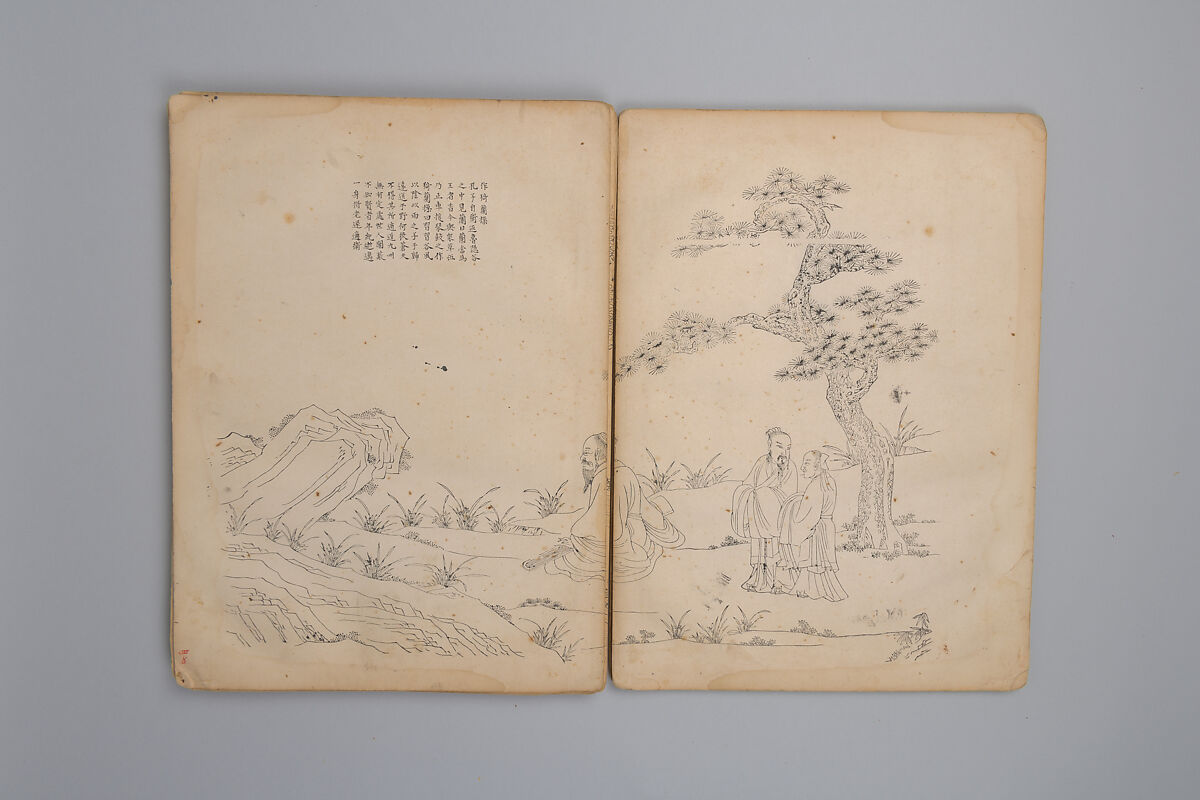 作猗蘭操
孔子自衛返魯隱谷
之中見蘭曰蘭當為
王者香今與眾草伍
乃止車援琴鼓之作
猗蘭操曰習習谷風
以陰以雨之子于歸
遠送于野何彼蒼天
不得其所逍遙九州
無有定處世人闇蔽
不知賢者年紀逝邁
一身將老遂適衛